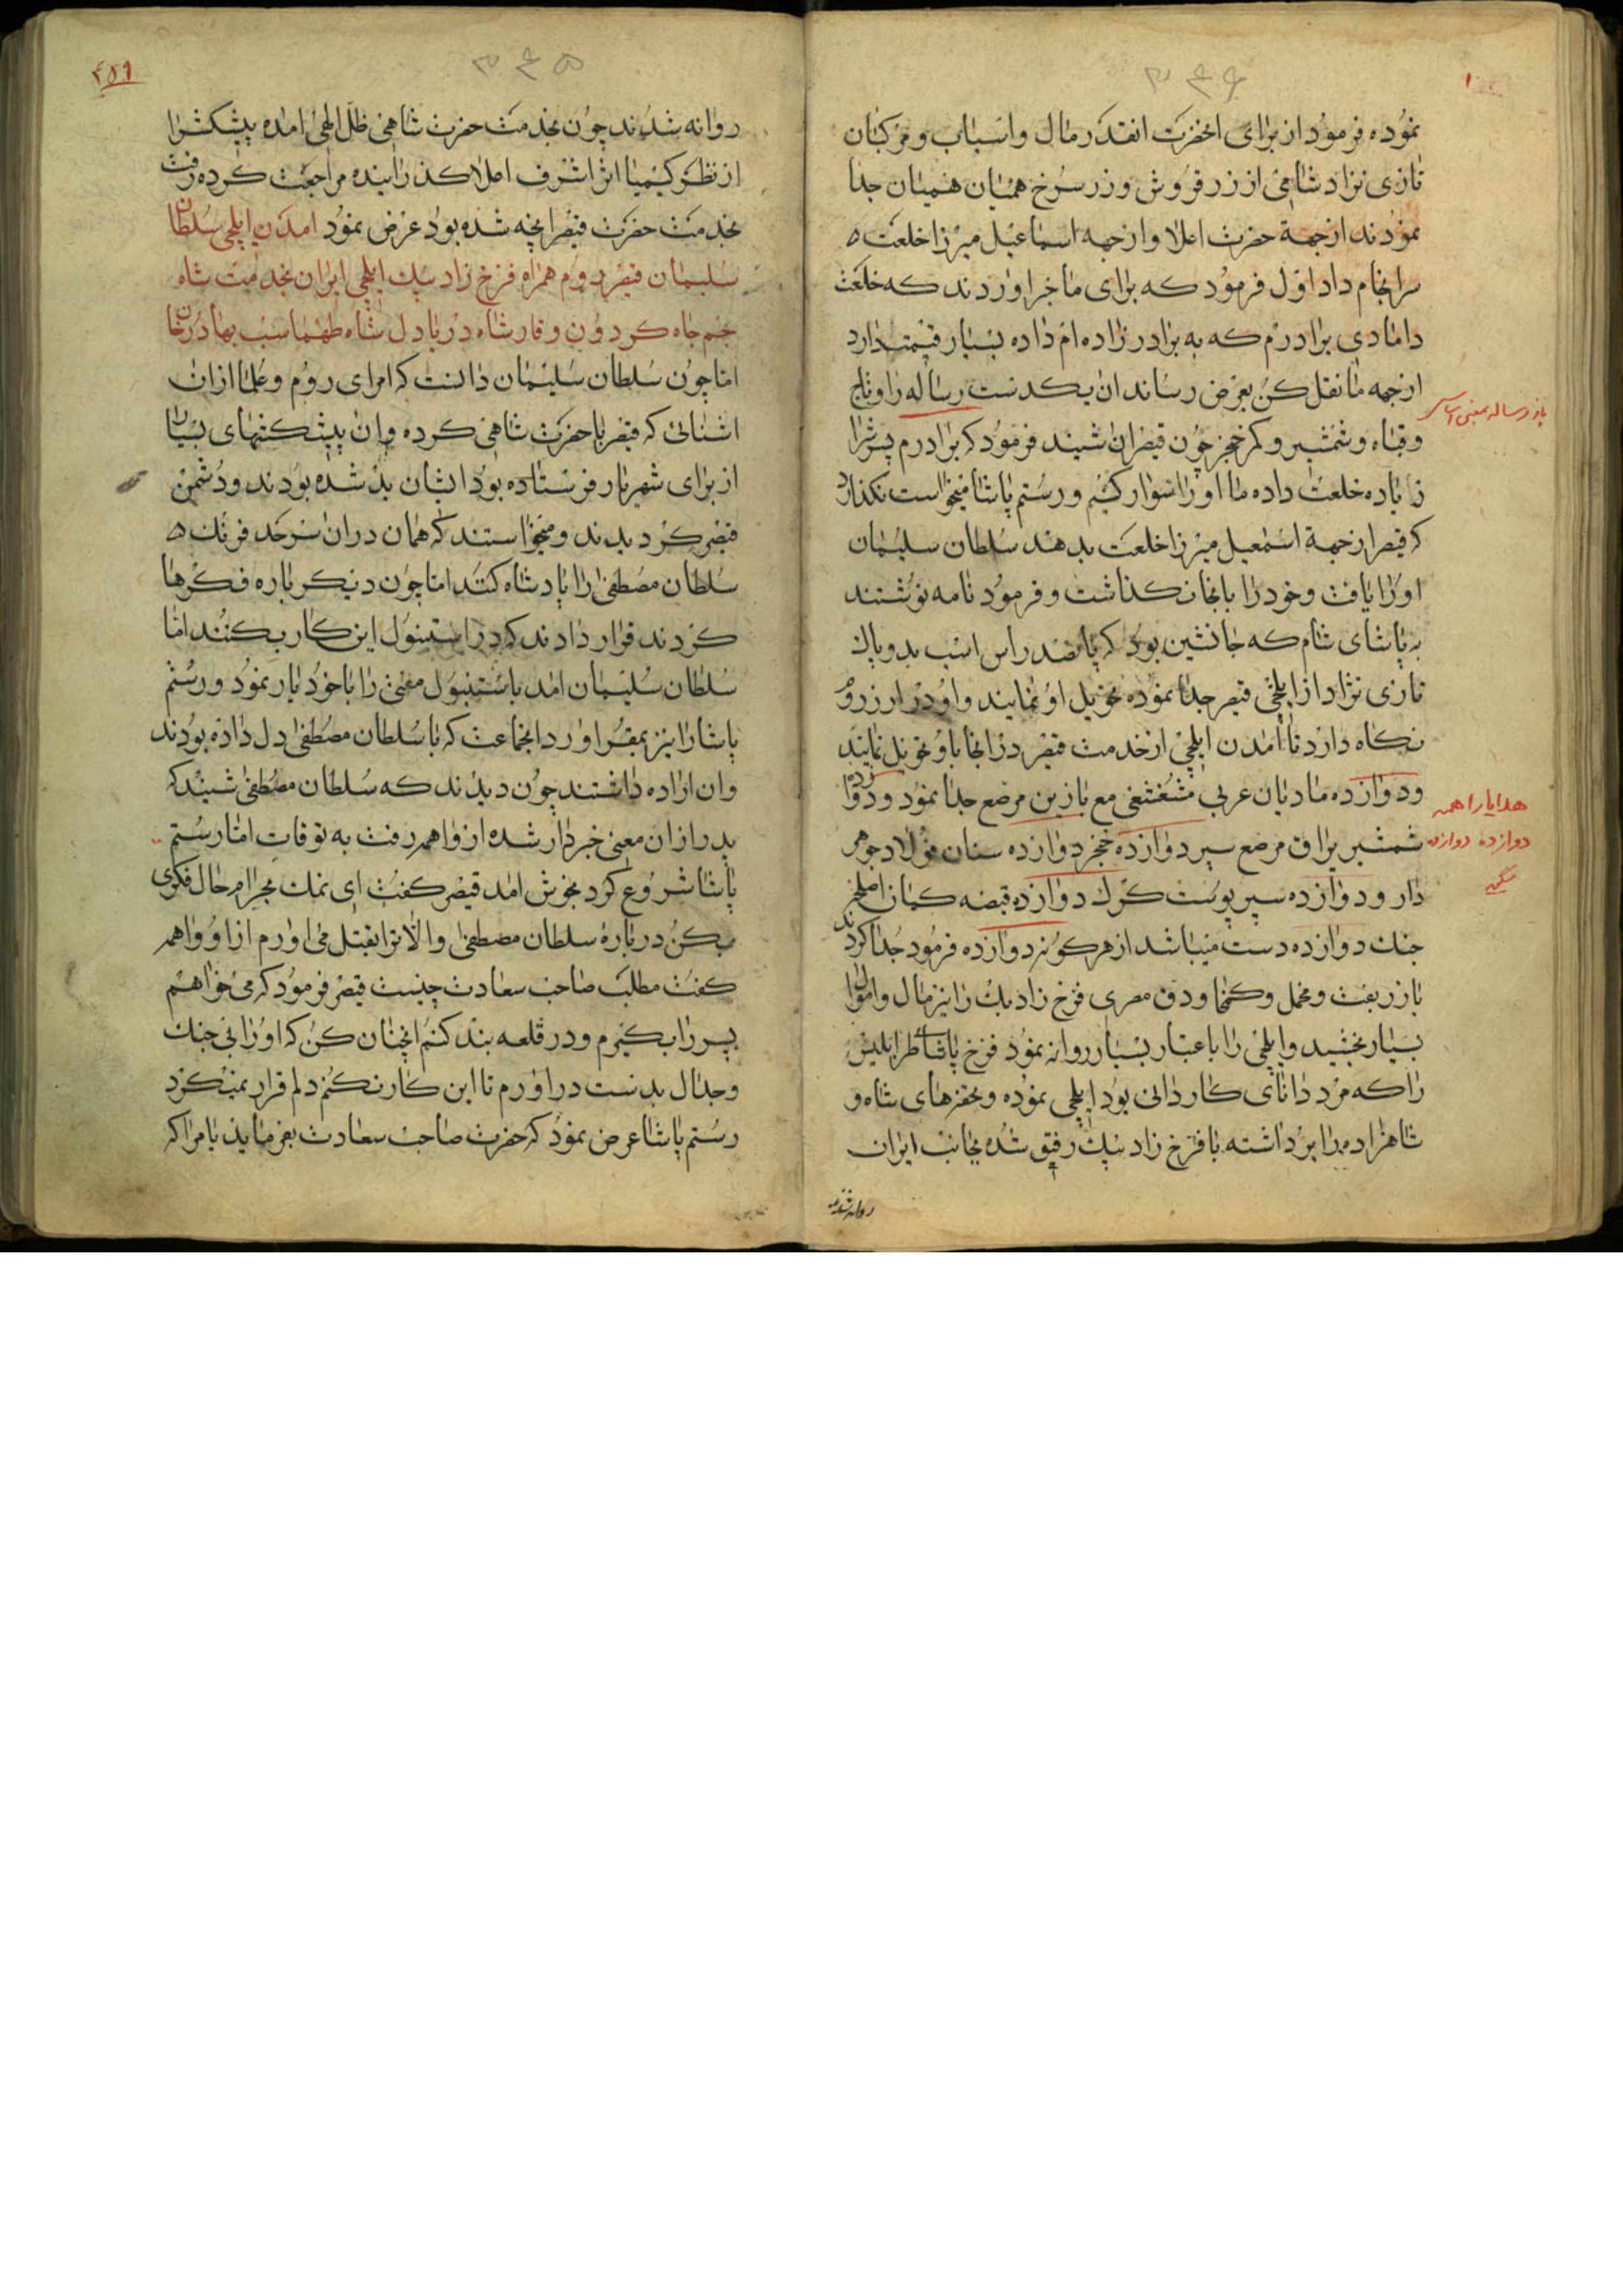 نموده فرمود از برای انحضرت انقدر مال و اسباب و مرکبان
تازی نژاد شامی از زر فروش و زر سرخ همیان همیان جدا
نمودند از جهة حضرت اعلا و از جهه اسماعیل میرزا خلعت
سرانجام داد اوّل فرمود که برای ما خبر اوردند که خلعت
دامادی برادرم که به برادرزاده ام داده بسیار قیمت دارد
از جهه ما نقل کن بعرض رساند ان یکدست رساله را و تاج
و قباه و شمشیر و کمر خنجر چون قیصر ان شنید فرمود که برادرم پسر را
زیاده خلعت داده ما او را سوار کنیم و رستم پاشا میخواست نکذارد
که قیصر از جهة اسمعیل میرزا خلعت بدهند سلطان سلیمان
او را یافت و خود را بانجا نکذاشت و فرمود نامه نوشتند
به پاشای شام که جانشین بود که پانصد راس اسب بدو پاك
تازی نژاد از ایلخی قیصر جدا نموده تحویل او نمایند و او در ارزروم
نکاه دارد تا امدن ایلچی از خدمت قیصر در انجا باو تحویل نمایند
و دوازده مادیان عربی مع با زین مرصع جدا نمود و دوازده
شمشیر یراق مرصع سپر دوازده خنجر دوازده سنان فولاد جوهر
دار و دوازده سپر پوست کرك دوازده قبضه کمان
جنك دوازده دست میباشد از هر کونه دوازده فرمود جدا کردند
با زربفت و مخمل و کمخا و دق مصری فرخ زاد بیك را نیز مال و اموال
بسیار بخشید و ایلچی را با عتبار بسیار روانه نمود فرخ پاشای طرابلیس
را که مرد دانای کاردانی بود ایلچی نموده و تحفهای شاه و
شاهزاده را برداشته با فرخ زاد بیك رفیق شده بجانب ایران
روانه شدند
یاز رساله بمعنی
هدایا را همه
دوازده دوازده
۳۴۶
۳۴۵
۴۵۹
روانه شدند چون بخدمت حضرت شاهی ظل الهی امده پیشکش را
از نظر کیمیا اثر اشرف اعلا کذرانیده مراجعت کرده رفت
بخدمت حضرت قیصر انچه شده بود عرض نمود امدن ایلچی سلطان
سلیمان قیصر روم همراه فرخ زاد بیك ایلچی ایران بخدمت شاه
جم جاه کردون وقار شاه دریا دل شاه طهماسب بهادر خان
امّا چون سلطان سلیمان دانست که امرای روم و علما ازان
اشنائی که قیصر با حضرت شاهی کرده و ان پیشکشهای بسیار
از برای شهریار فرستاده بود ایشان بد شده بودند و دشمن
قیصر کردیدند و میخواستند که همان دران سرحد فرنك
سلطان مصطفی را پادشاه کنند امّا چون دیکر باره فکرها
کردند قرار دادند که در استنبول این کار بکنند امّا
سلطان سلیمان امد باستنبول مفتی را با خود یار نمود و رستم
پاشا را نیز بمقر اورد انجماعت که با سلطان مصطفی دل داده بودند
و ان اراده داشتند چون دیدند که سلطان مصطفی شنید که
پدر ازان معنی خبردار شده از واهمه رفت به توقات امّا رستم
پاشا شروع کرد بخوش امد قیصر کفت ای نمك بحرام حال فکری
بکن درباره سلطان مصطفی و الّا ترا بقتل می اورم از او واهمه
کفت مطلب صاحب سعادت چیست قیصر فرمود که می خواهم
پسر را بکیرم و در قلعه بند کنم انچنان کن که او را بی جنك
و جدال بدست در اورم تا این کار نکنم دلم قرار نمیکیرد
رستم پاشا عرض نمود که حضرت صاحب سعادت بفرماید یا مرا که